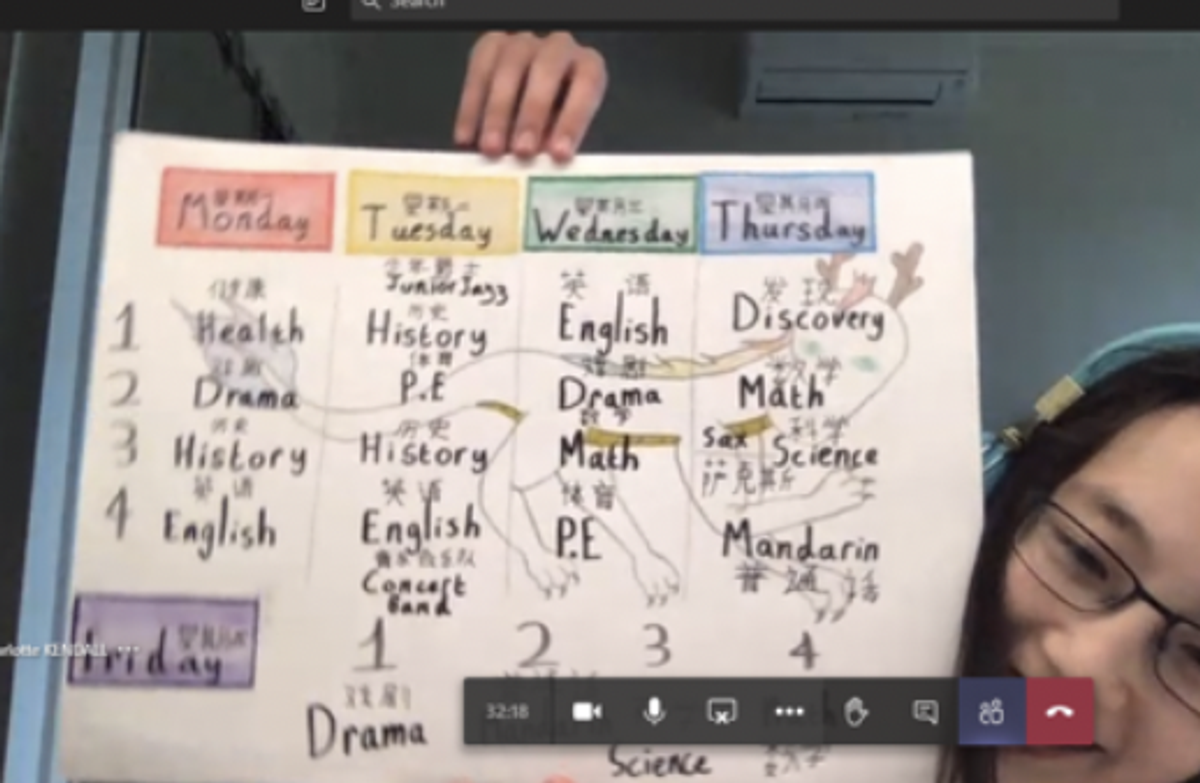 Search
星期一
Monday
星期二
Tuesday
星期三
Wednesday
星期四
Thursday
少年爵士
Junior Jazz
1
健康
Health
历史
History
英语
English
发现
Discovery
2
戏剧
Drama
体育
P.E
戏剧
Drama
数学
Math
3
历史
History
历史
History
数学
Math
Sax
萨克斯
科学
Science
4
英语
English
英语
English
体育
P.E
Mandarin
普通话
Concert
Band
星期五
Friday
KENDALL
1 2 3 4
戏剧
Drama
Science
数学
32:18